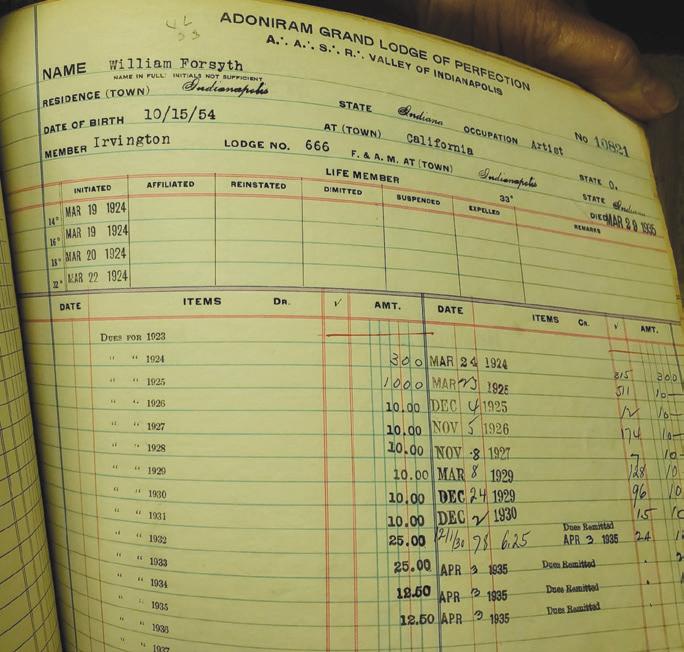 ADONIRAM GRAND LODGE OF PERFECTION
A.·. A.·. S.·. R.·. VALLEY OF INDIANAPOLIS
NAME William Forsyth
NAME IN FULL: INITIALS NOT SUFFICIENT
RESIDENCE (TOWN) Indianapolis STATE Indiana OCCUPATION Artist No 10821
DATE OF BIRTH 10/15/54 AT (TOWN) California STATE O.
MEMBER Irvington LODGE NO. 666 F. & A. M. AT (TOWN) Indianapolis STATE Indiana
LIFE MEMBER 33° DIED MAR 29 1935
INITIATED AFFILIATED REINSTATED DIMITTED SUSPENDED EXPELLED REMARKS
14° MAR 19 1924
16° MAR 19 1924
18° MAR 20 1924
32° MAR 22 1924
DATE ITEMS DR. √ AMT. DATE ITEMS CR. √ AMT.
DUES FOR 1923
" " 1924 300 MAR 24 1924 815 300
" " 1925 1000 MAR 23 1925 511 10—
" " 1926 10.00 DEC 4 1925 12 10—
" " 1927 10.00 NOV 5 1926 174 10—
" " 1928 10.00 NOV 8 1927 7 10—
" " 1929 10.00 MAR 8 1929 128 10
" " 1930 10.00 DEC 24 1929 96 10
" " 1931 10.00 DEC 2 1930 15
" " 1932 25.00 12/1/30 78 6.25 Dues Remitted APR 3 1935 24
" " 1933 25.00 APR 3 1935 Dues Remitted
" " 1934 12.50 APR 3 1935 Dues Remitted
" " 1935 12.50 APR 3 1935 Dues Remitted
" " 1936
" " 1937